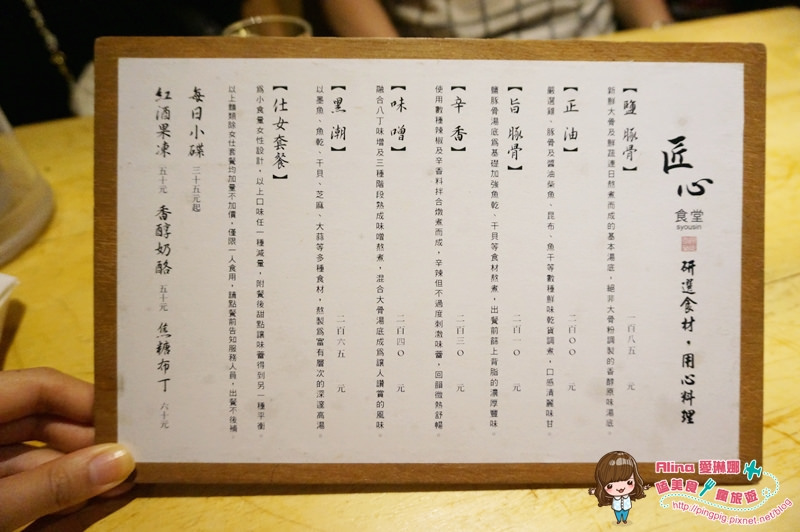 匠心
食堂
syousin
研選食材，用心料理
【鹽豚骨】
新鮮大骨及鮮蔬連日熬煮而成的基本湯底，絕非大骨粉調製的香醇原味湯底。
一百八五 元
【正油】
嚴選雞、豚骨及醬油柴魚、昆布、魚干等數種鮮味乾貨調煮，口感清麗味甘
二百00 元
【旨豚骨】
鹽豚骨湯底為基礎加強魚乾、干貝等食材熬煮，出餐前篩上背脂的濃厚豐味。
二百一0 元
【辛香】
使用數種辣椒及辛香料拌合燉煮而成，辛辣但不過度刺激味蕾，回韻微熱舒暢。
二百三0 元
【味噌】
融合八丁味增及三種階段熟成味噌熬煮，混合大骨湯底成為讓人讚賞的風味
二百四0 元
【黑潮】
以墨魚、魚乾、干貝、芝麻、大蒜等多種食材，熬製為富有層次的深邃高湯。
二百六五 元
【仕女套餐】
為小食量女性設計，以上口味任一種減量，附餐後甜點讓味蕾得到另一種平衡
以上麵類除女仕套餐均加量不加價，僅限一人食用，請點餐前告知服務人員，出餐不後補。
每日小碟 三十五元起
紅酒果凍 五十元 香醇奶酪 五十元 焦糖布丁 六十元
Alina 愛琳娜
嗑美食 瘋旅遊
http://pingpig.pixnet.net/blog